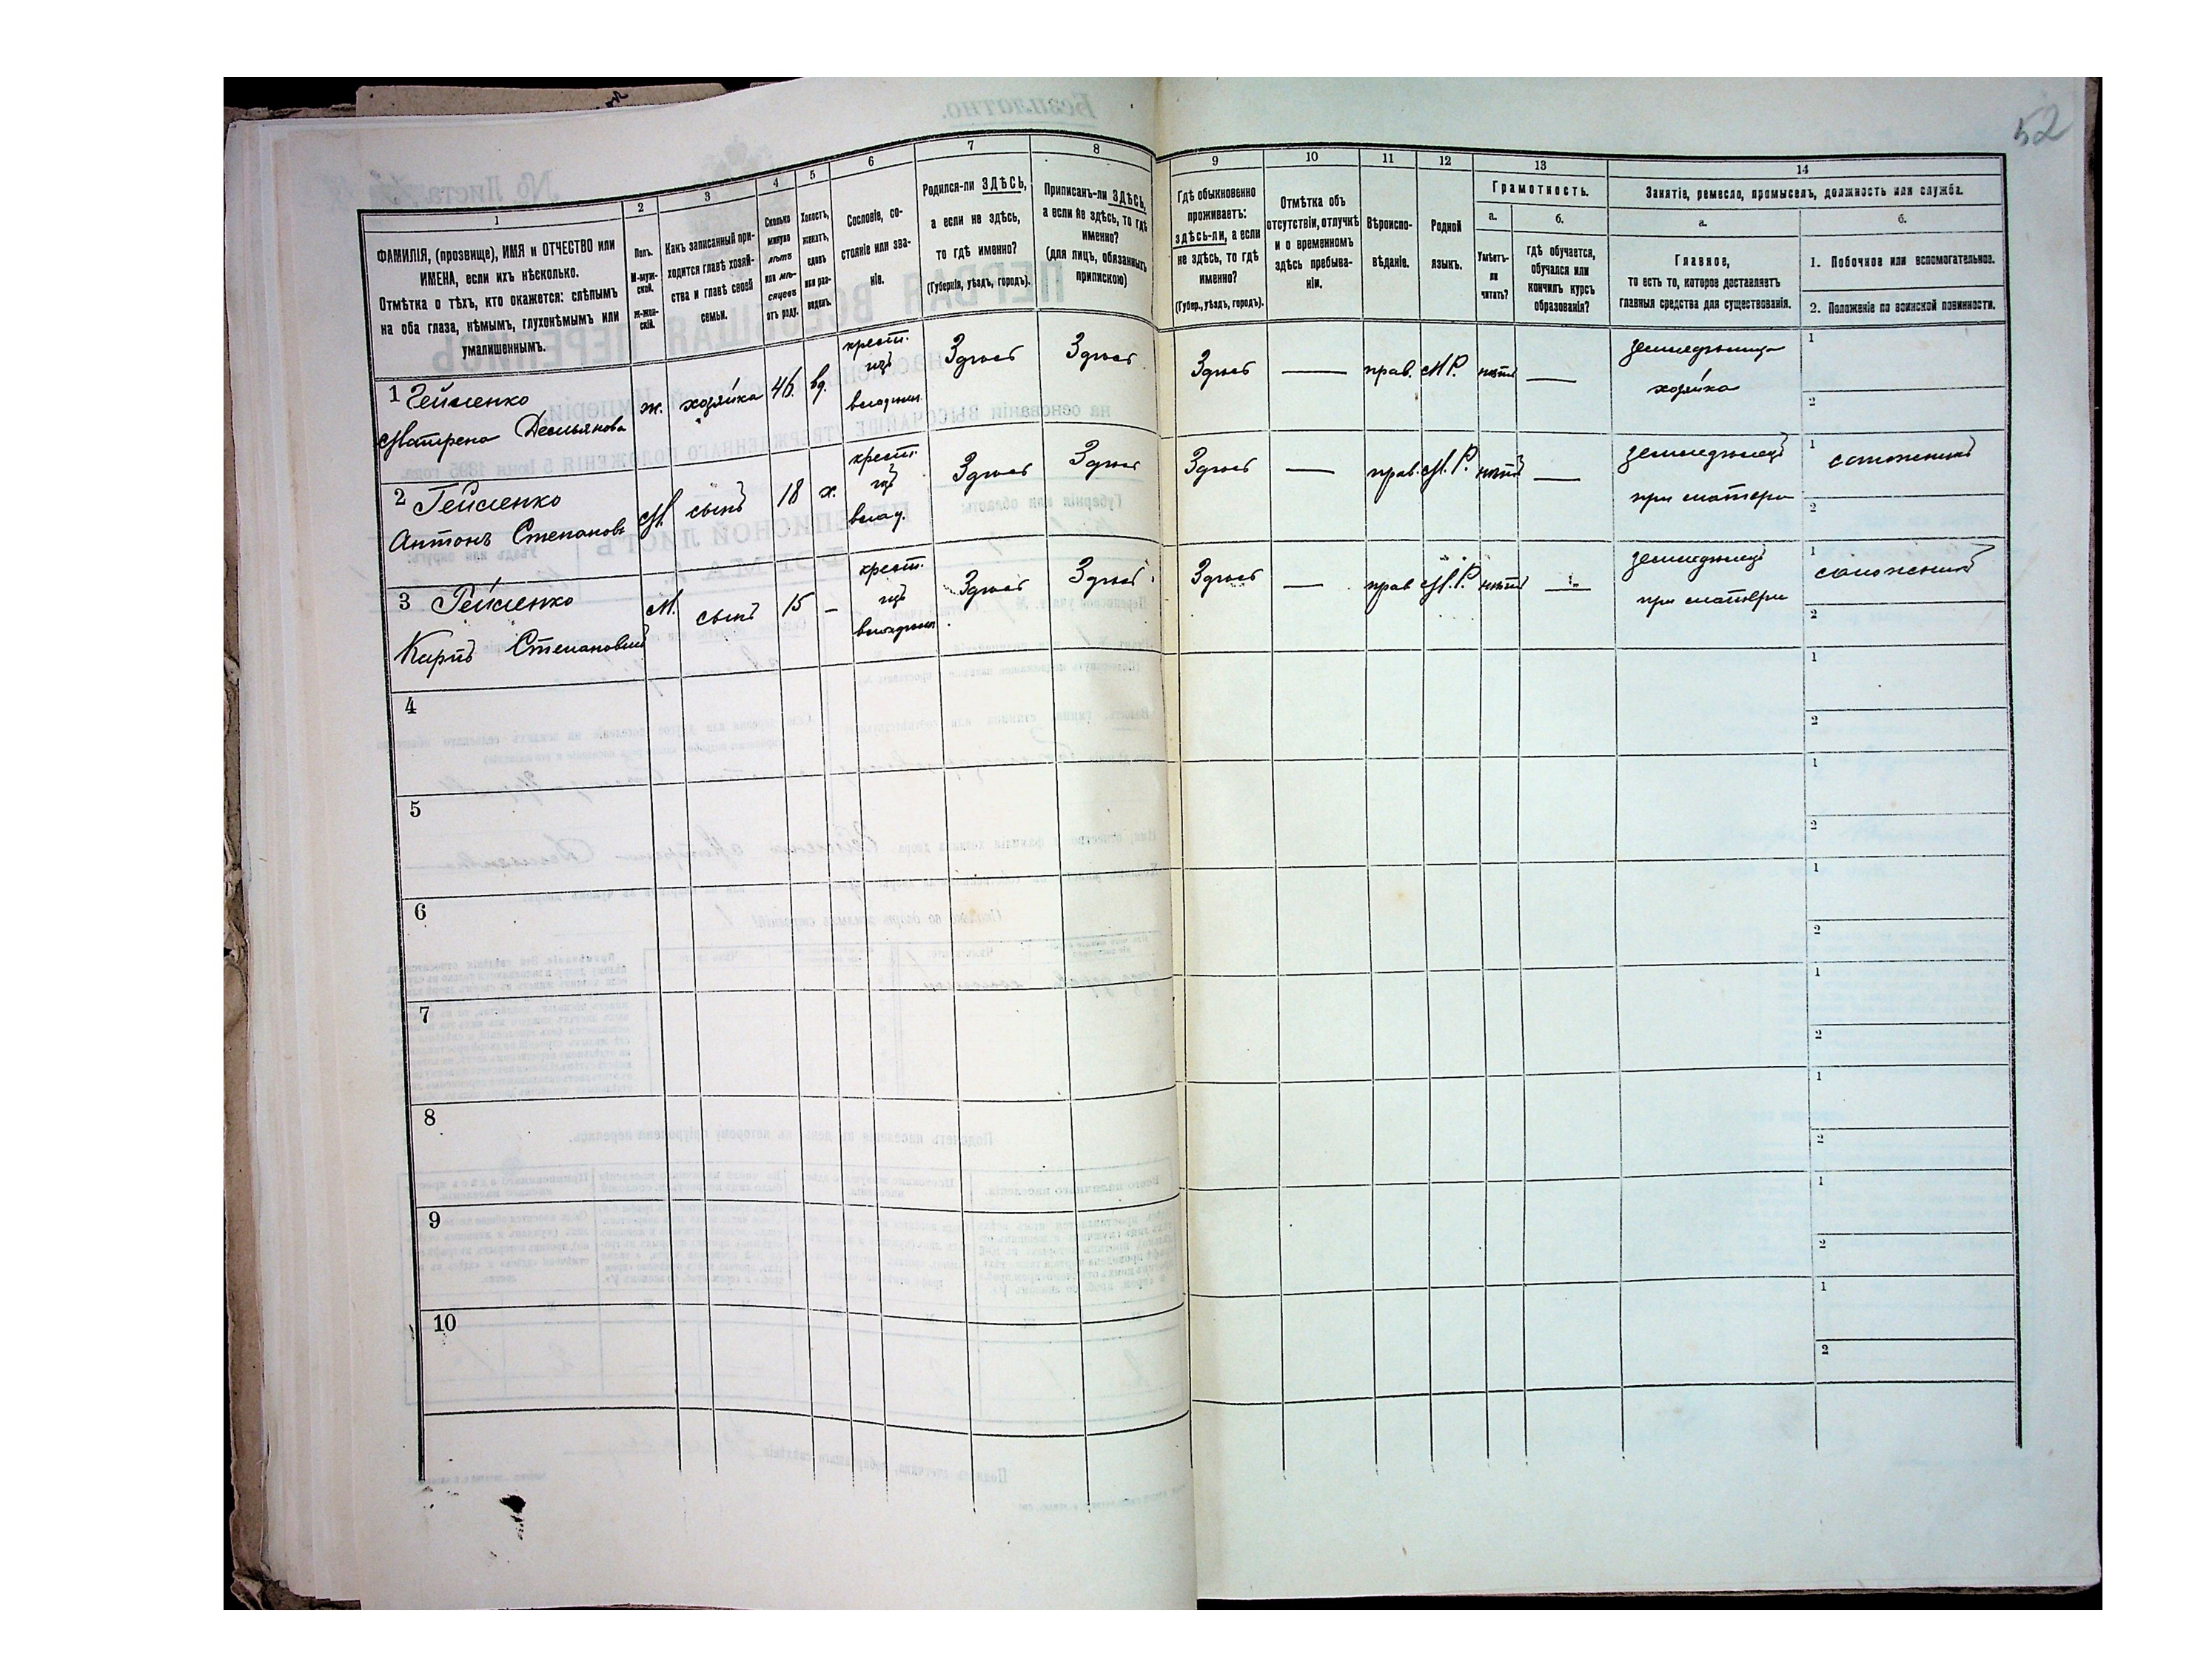 52
1 2 3 4 5 6 7 8 9 10 11 12 13 14
ФАМИЛІЯ, (прозвище), ИМЯ и ОТЧЕСТВО или
ИМЕНА, если ихъ нѣсколько.
Отмѣтка о тѣхъ, кто окажется: слѣпымъ
на оба глаза, нѣмымъ, глухонѣмымъ или
умалишеннымъ.
Полъ.
М-муж-
ской.
Ж-жен-
скій.
Какъ записанный при-
ходится главѣ хозяй-
ства и главѣ своей
семьи.
Сколько
минуло
лѣтъ
или мѣ-
сяцевъ
отъ роду.
Холостъ,
женатъ,
вдовъ
или раз-
веденъ.
Сословіе, со-
стояніе или зва-
ніе.
Родился-ли ЗДѢСЬ,
а если не здѣсь,
то гдѣ именно?
(Губернія, уѣздъ, городъ).
Приписанъ-ли ЗДѢСЬ,
а если не здѣсь, то гдѣ
именно?
(для лицъ, обязанныхъ
припискою)
Гдѣ обыкновенно
проживаетъ:
здѣсь-ли, а если
не здѣсь, то гдѣ
именно?
(Губер., уѣздъ, городъ).
Отмѣтка объ
отсутствіи, отлучкѣ
и о временномъ
здѣсь пребыва-
ніи.
Вѣроиспо-
вѣданіе.
Родной
языкъ.
Грамотность.
а.
Умѣетъ-
ли
читать?
б.
гдѣ обучается,
обучался или
кончилъ курсъ
образованія?
Занятіе, ремесло, промыселъ, должность или служба.
а.
Главное,
то есть то, которое доставляетъ
главныя средства для существованія.
б.
1. Побочное или вспомогательное.
2. Положеніе по воинской повинности.
1 Геймленко
Матрена Демьянова
ж. хозяйка 46. вд.
крест.
изъ
владѣльч.
Здѣсь Здѣсь Здѣсь — прав. М.Р. нѣтъ —
земледѣлица
хозяйка
1
2
2 Геймленко
Антонъ Степановъ
М. сынъ 18 х.
крест.
изъ
влад.
Здѣсь Здѣсь Здѣсь — прав. М.Р. нѣтъ —
земледѣлецъ
при матери
1
2
3 Геймленко
Карпъ Степановичъ
М. сынъ 15 –
крест.
изъ
владѣльч.
Здѣсь Здѣсь Здѣсь — прав М.Р. нѣтъ —
земледѣлецъ
при матери
1
2
4
1
2
5
1
2
6
1
2
7
1
2
8
1
2
9
1
2
10
1
2